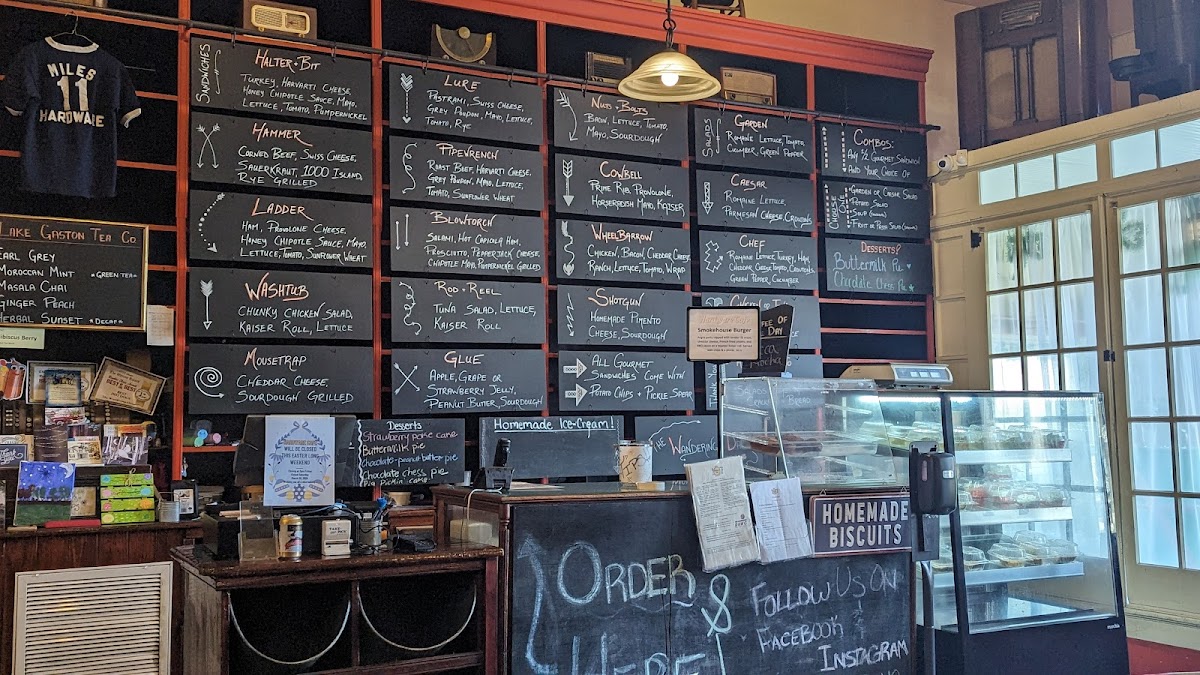 MILES
11
HARDWARE
LAKE GASTON TEA CO.
EARL GREY
MOROCCAN MINT *GREEN TEA*
MASALA CHAI
GINGER PEACH
HERBAL SUNSET *DECAF*
Hibiscus Berry
SANDWICHES
HALTER + BIT
TURKEY, HAVARTI CHEESE,
HONEY CHIPOTLE SAUCE, MAYO,
LETTUCE, TOMATO, PUMPERNICKEL
HAMMER
CORNED BEEF, SWISS CHEESE,
SAUERKRAUT, 1000 ISLAND,
RYE GRILLED
LADDER
HAM, PROVOLONE CHEESE,
HONEY CHIPOTLE SAUCE, MAYO,
LETTUCE, TOMATO, SUNFLOWER WHEAT
WASHTUB
CHUNKY CHICKEN SALAD,
KAISER ROLL, LETTUCE
MOUSETRAP
CHEDDAR CHEESE,
SOURDOUGH GRILLED
LURE
PASTRAMI, SWISS CHEESE,
GREY POUPON, MAYO, LETTUCE,
TOMATO, RYE
PIPEWRENCH
ROAST BEEF, HAVARTI CHEESE,
GREY POUPON, MAYO, LETTUCE,
TOMATO, SUNFLOWER WHEAT
BLOWTORCH
SALAMI, HOT CAPICOLA HAM,
PROSCIUTTO, PEPPERJACK CHEESE,
CHIPOTLE MAYO, PUMPERNICKEL GRILLED
ROD + REEL
TUNA SALAD, LETTUCE,
KAISER ROLL
GLUE
APPLE, GRAPE OR
STRAWBERRY JELLY,
PEANUT BUTTER, SOURDOUGH
NUTS + BOLTS
BACON, LETTUCE, TOMATO,
MAYO, SOURDOUGH
COWBELL
PRIME RIB, PROVOLONE,
HORSERADISH MAYO, KAISER
WHEELBARROW
CHICKEN, BACON, CHEDDAR CHEESE,
RANCH, LETTUCE, TOMATO, WRAP
SHOTGUN
HOMEMADE PIMENTO
CHEESE, SOURDOUGH
ALL GOURMET
SANDWICHES COME WITH
POTATO CHIPS + PICKLE SPEAR
SALADS
GARDEN
ROMAINE LETTUCE, TOMATO,
CUCUMBER, GREEN PEPPER
CAESAR
ROMAINE LETTUCE,
PARMESAN CHEESE, CROUTONS
CHEF
ROMAINE LETTUCE, TURKEY, HAM,
CHEDDAR CHEESE, TOMATO, CROUTONS,
GREEN PEPPER, CUCUMBER
COMBOS:
ANY 1/2 GOURMET SANDWICH
AND YOUR CHOICE OF
CHOOSE ONE
GARDEN OR CAESAR SALAD
POTATO SALAD
FRUIT OR PASTA SALAD
DESSERTS!
Buttermilk Pie
Chocolate Chess Pie
Smokehouse Burger
OF
DAY
WILL BE CLOSED
THIS EASTER LONG
WEEKEND
Desserts
Strawberry poke cake
Buttermilk pie
Chocolate-peanut butter pie
Chocolate chess pie
Pig Pickin' cake
Homemade Ice-Cream!
THE WANDERING
HOMEMADE
BISCUITS
ORDER
HERE!
&
FOLLOW US ON
FACEBOOK &
INSTAGRAM